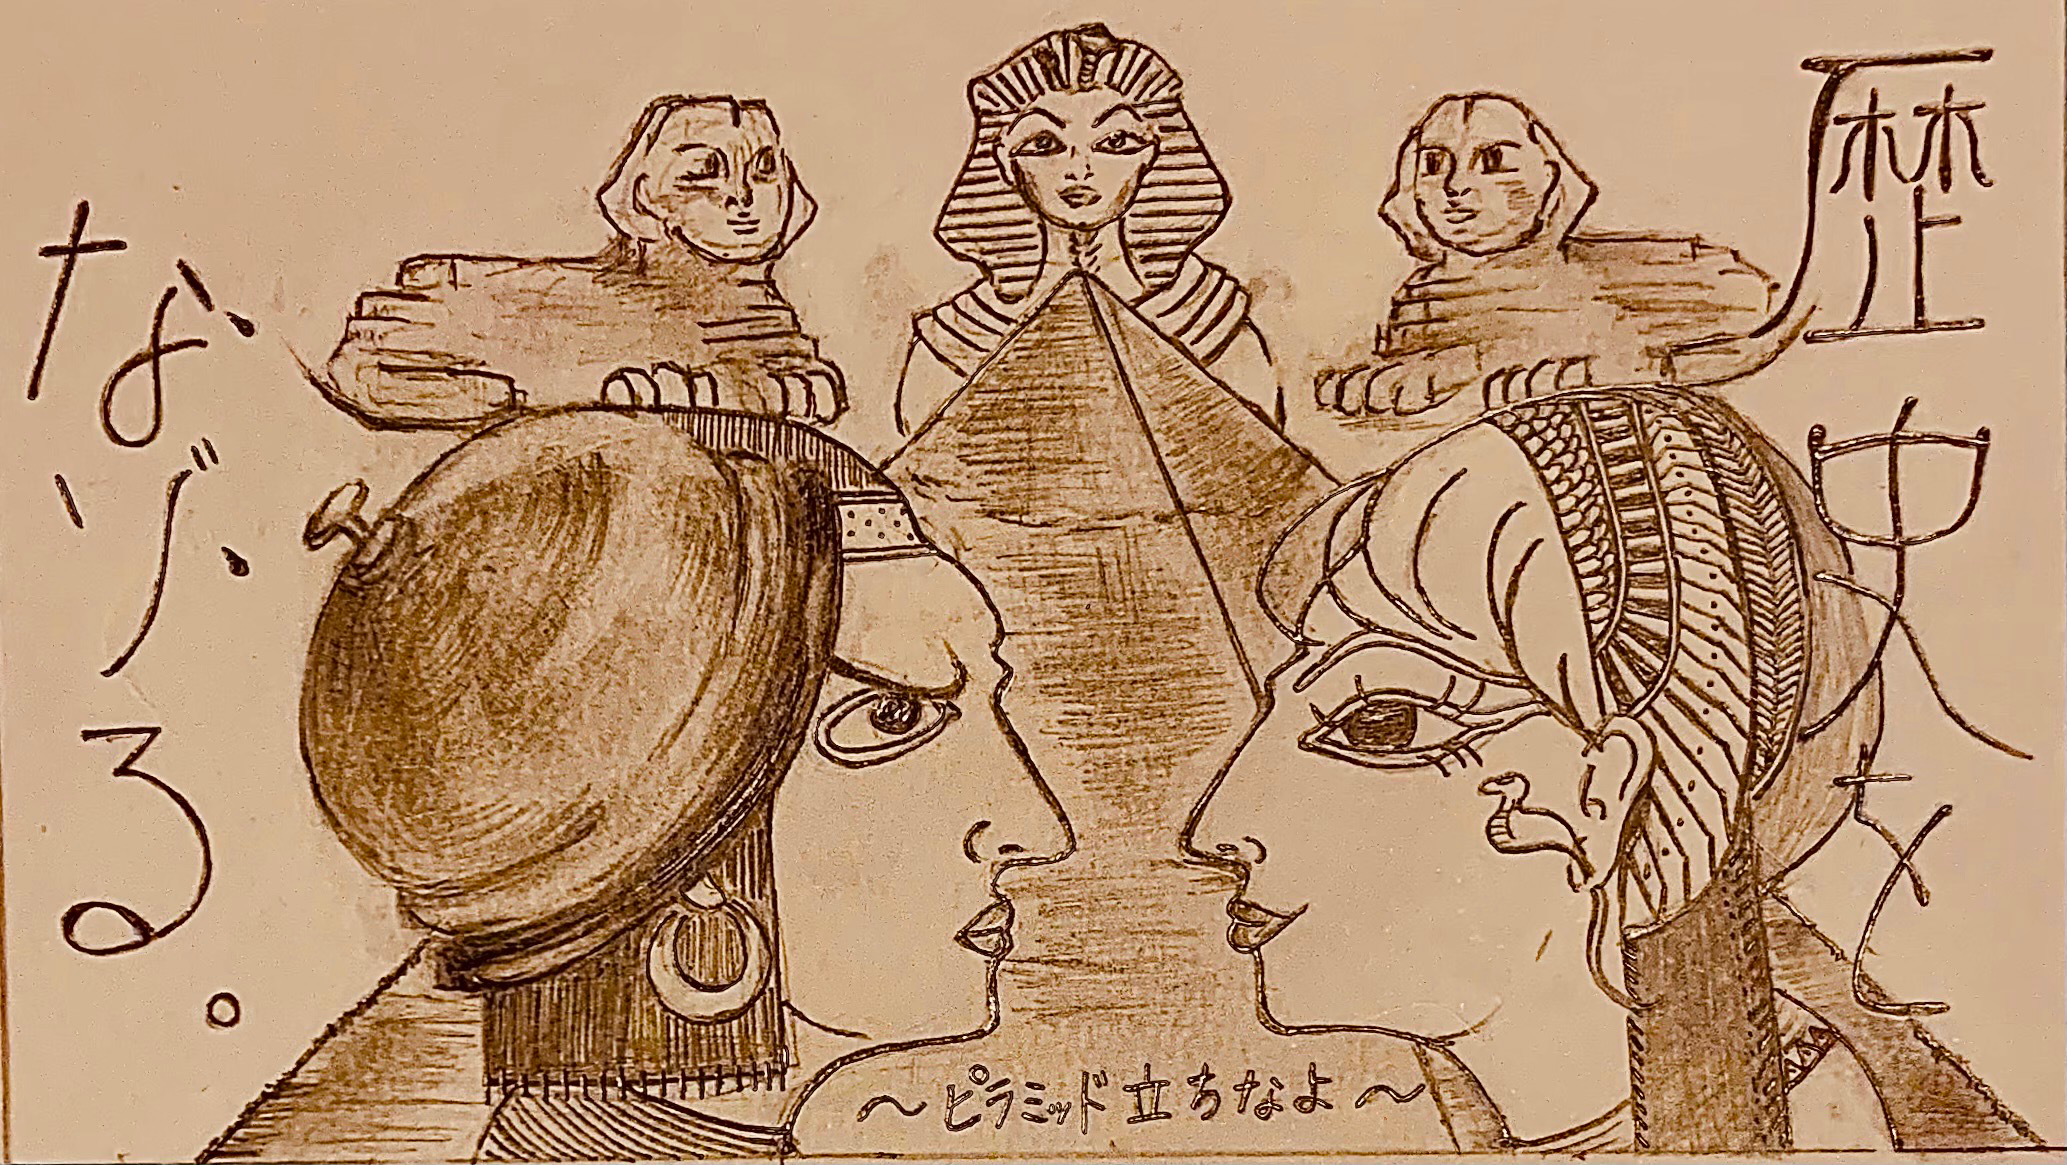 歴史を
なゾる。
～ピラミッド立ちなよ～